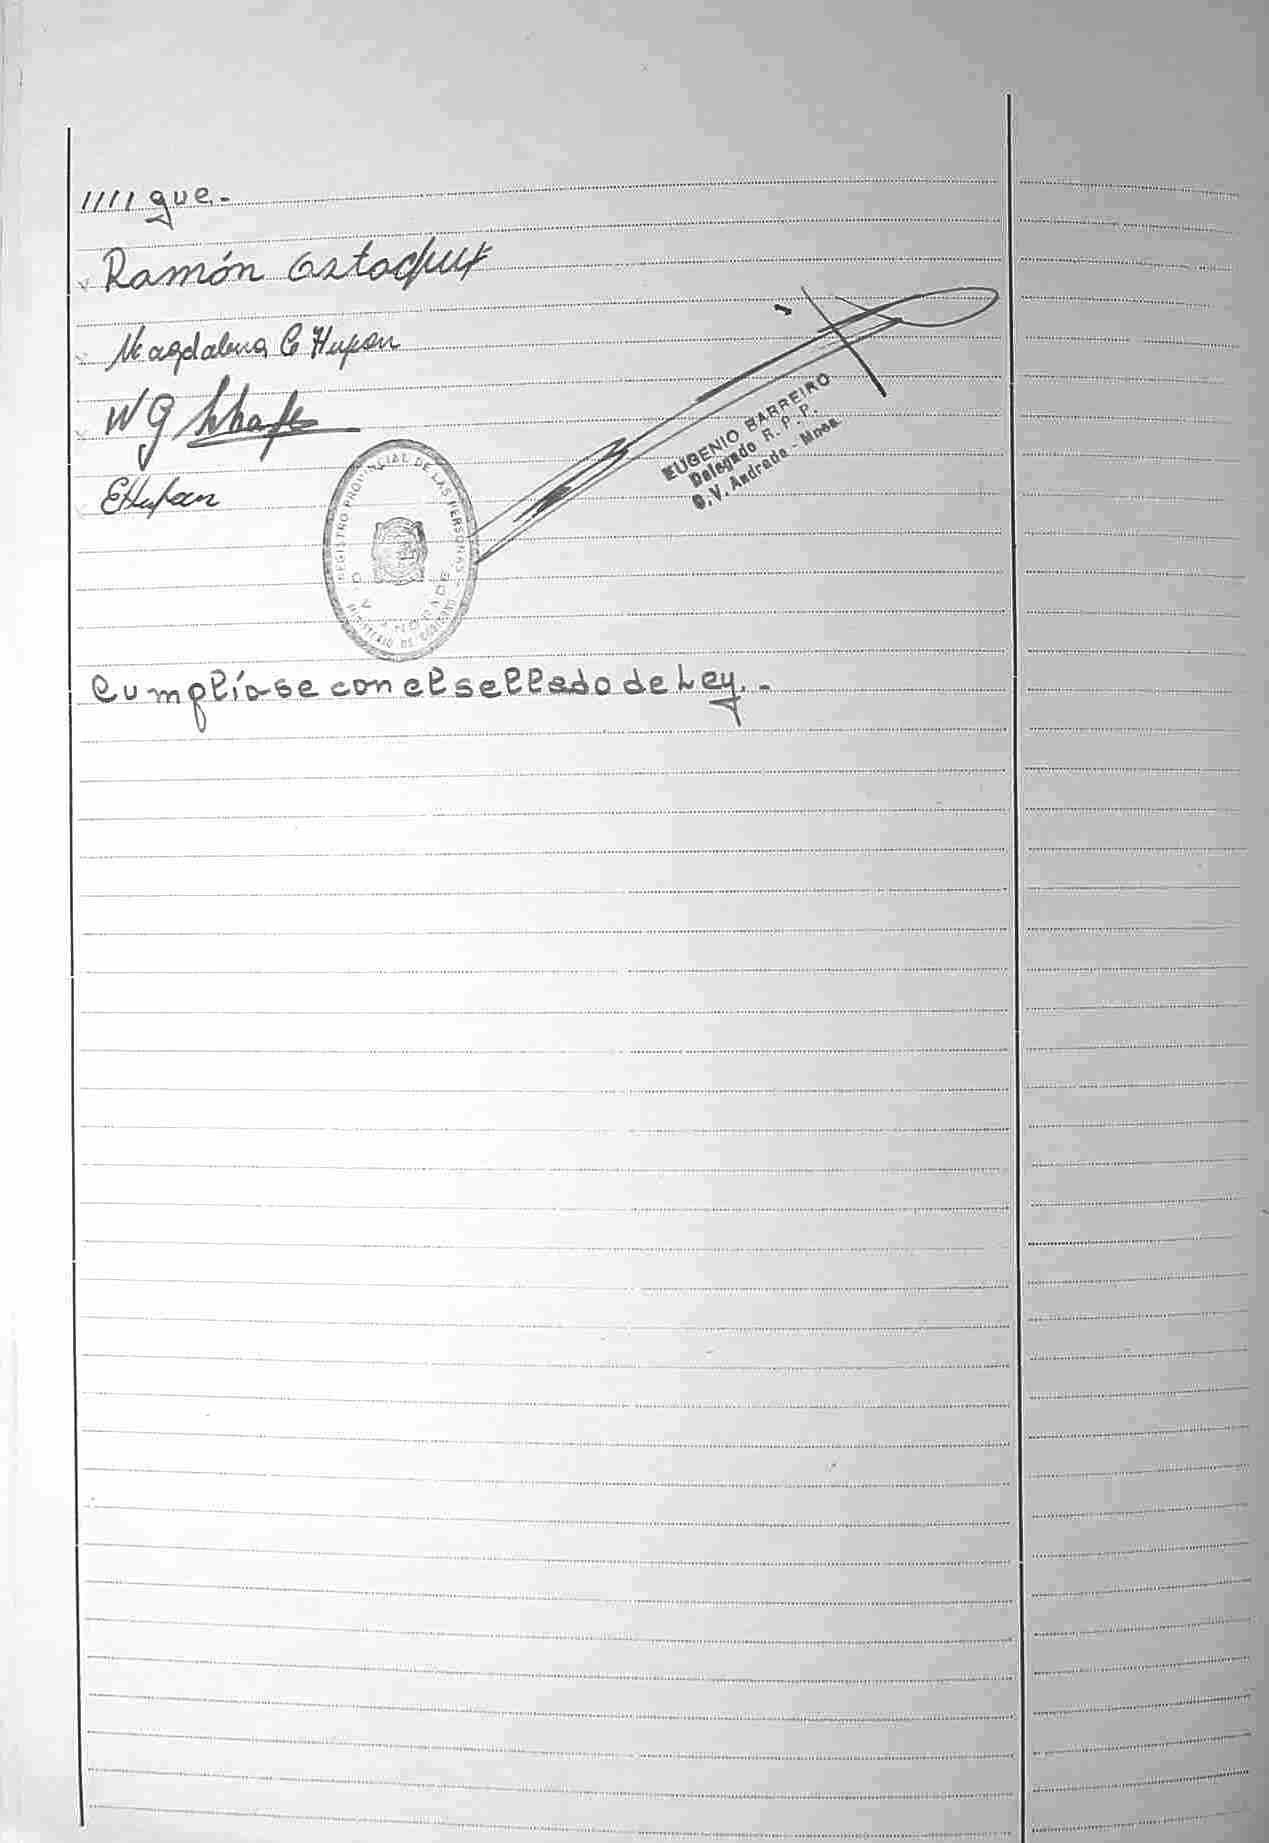 //// que.-
Ramón
Magdalena C Hupan
W G
EHupan
EUGENIO BARREIRO
Delegado R. P. P.
O. V. Andrade - Mnes.
REGISTRO PROVINCIAL DE LAS PERSONAS
O. V. ANDRADE
MINISTERIO DE GOBIERNO
Cumplíase con el sellado de Ley.-